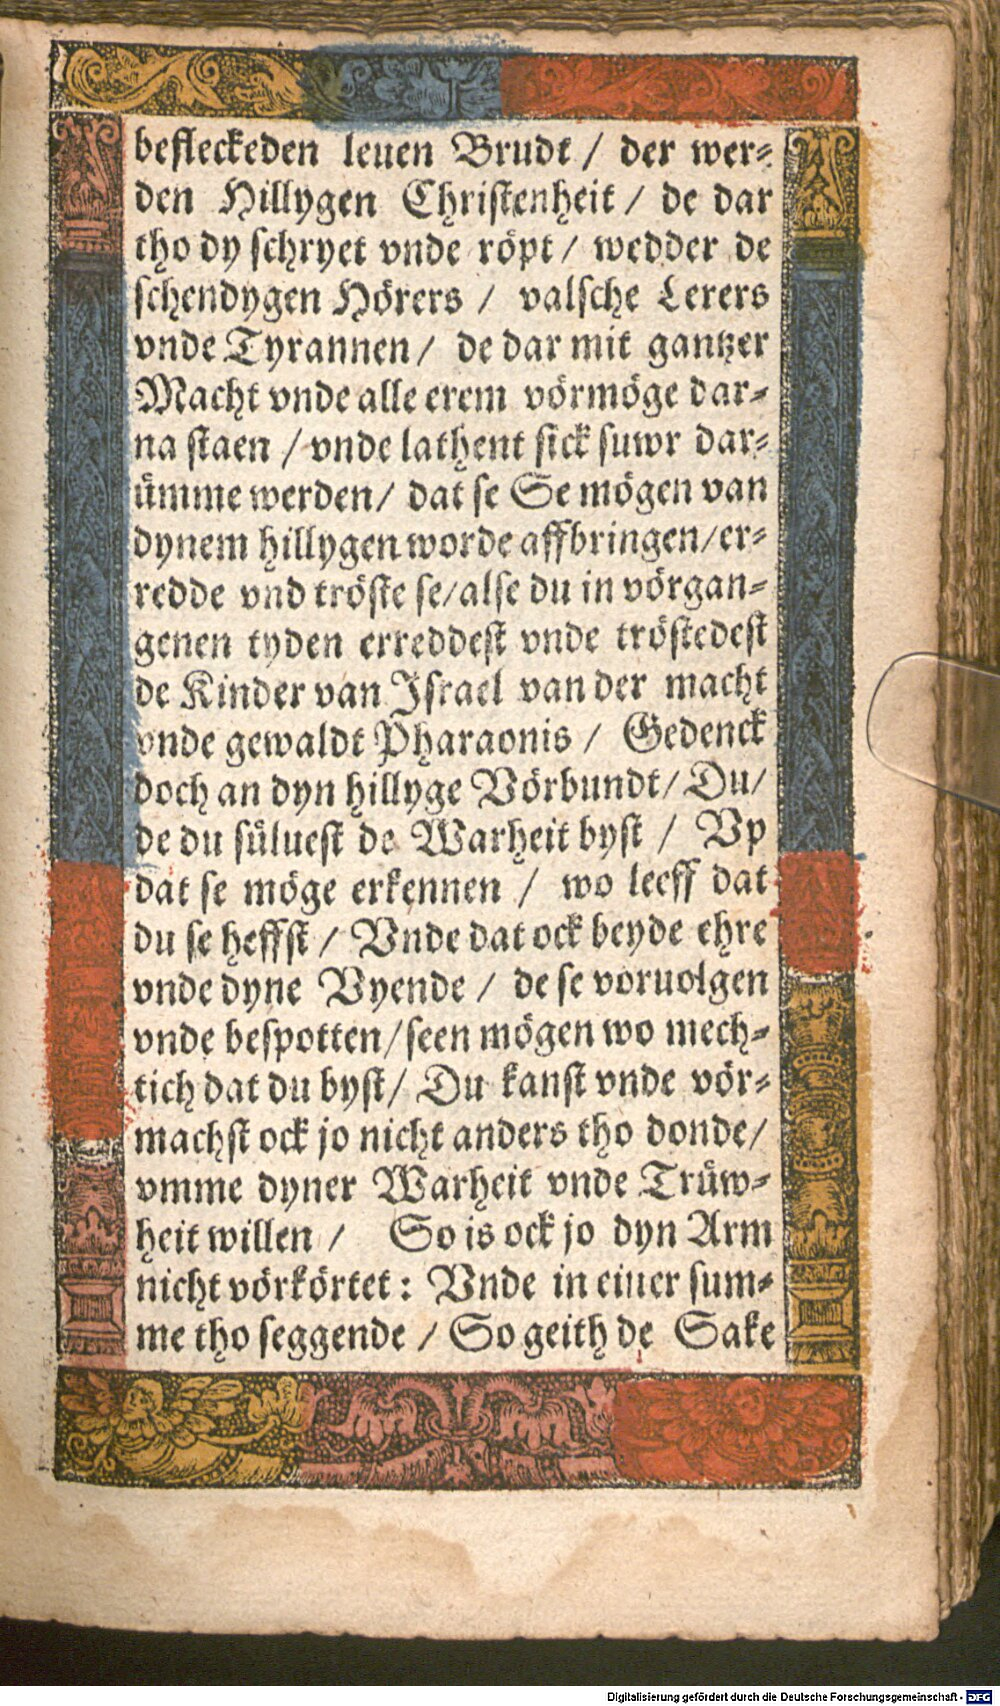 befleckeden leuen Brudt / der wer⸗
den Hillygen Christenheit / de dar
tho dy schryet vnde röpt / wedder de
schendygen Hörers / valsche Lerers
vnde Tyrannen / de dar mit gantzer
Macht vnde alle erem vörmöge dar⸗
na staen / vnde lathent sick suwr dar⸗
ümme werden / dat se Se mögen van
dynem hillygen worde affbringen / er⸗
redde vnd tröste se / alse du in vörgan⸗
genen tyden erreddest vnde tröstedest
de Kinder van Israel van der macht
vnde gewaldt Pharaonis / Gedenck
doch an dyn hillyge Vörbundt / Du /
de du süluest de Warheit byst / Vp
dat se möge erkennen / wo leeff dat
du se heffst / Vnde dat ock beyde ehre
vnde dyne Vyende / de se voruolgen
vnde bespotten / seen mögen wo mech⸗
tich dat du byst / Du kanst vnde vör⸗
machst ock jo nicht anders tho donde /
vmme dyner Warheit vnde Trüw⸗
heit willen / So is ock jo dyn Arm
nicht vörkörtet : Vnde in einer sum⸗
me tho seggende / So geith de Sake
Digitalisierung gefördert durch die Deutsche Forschungsgemeinschaft - DFG